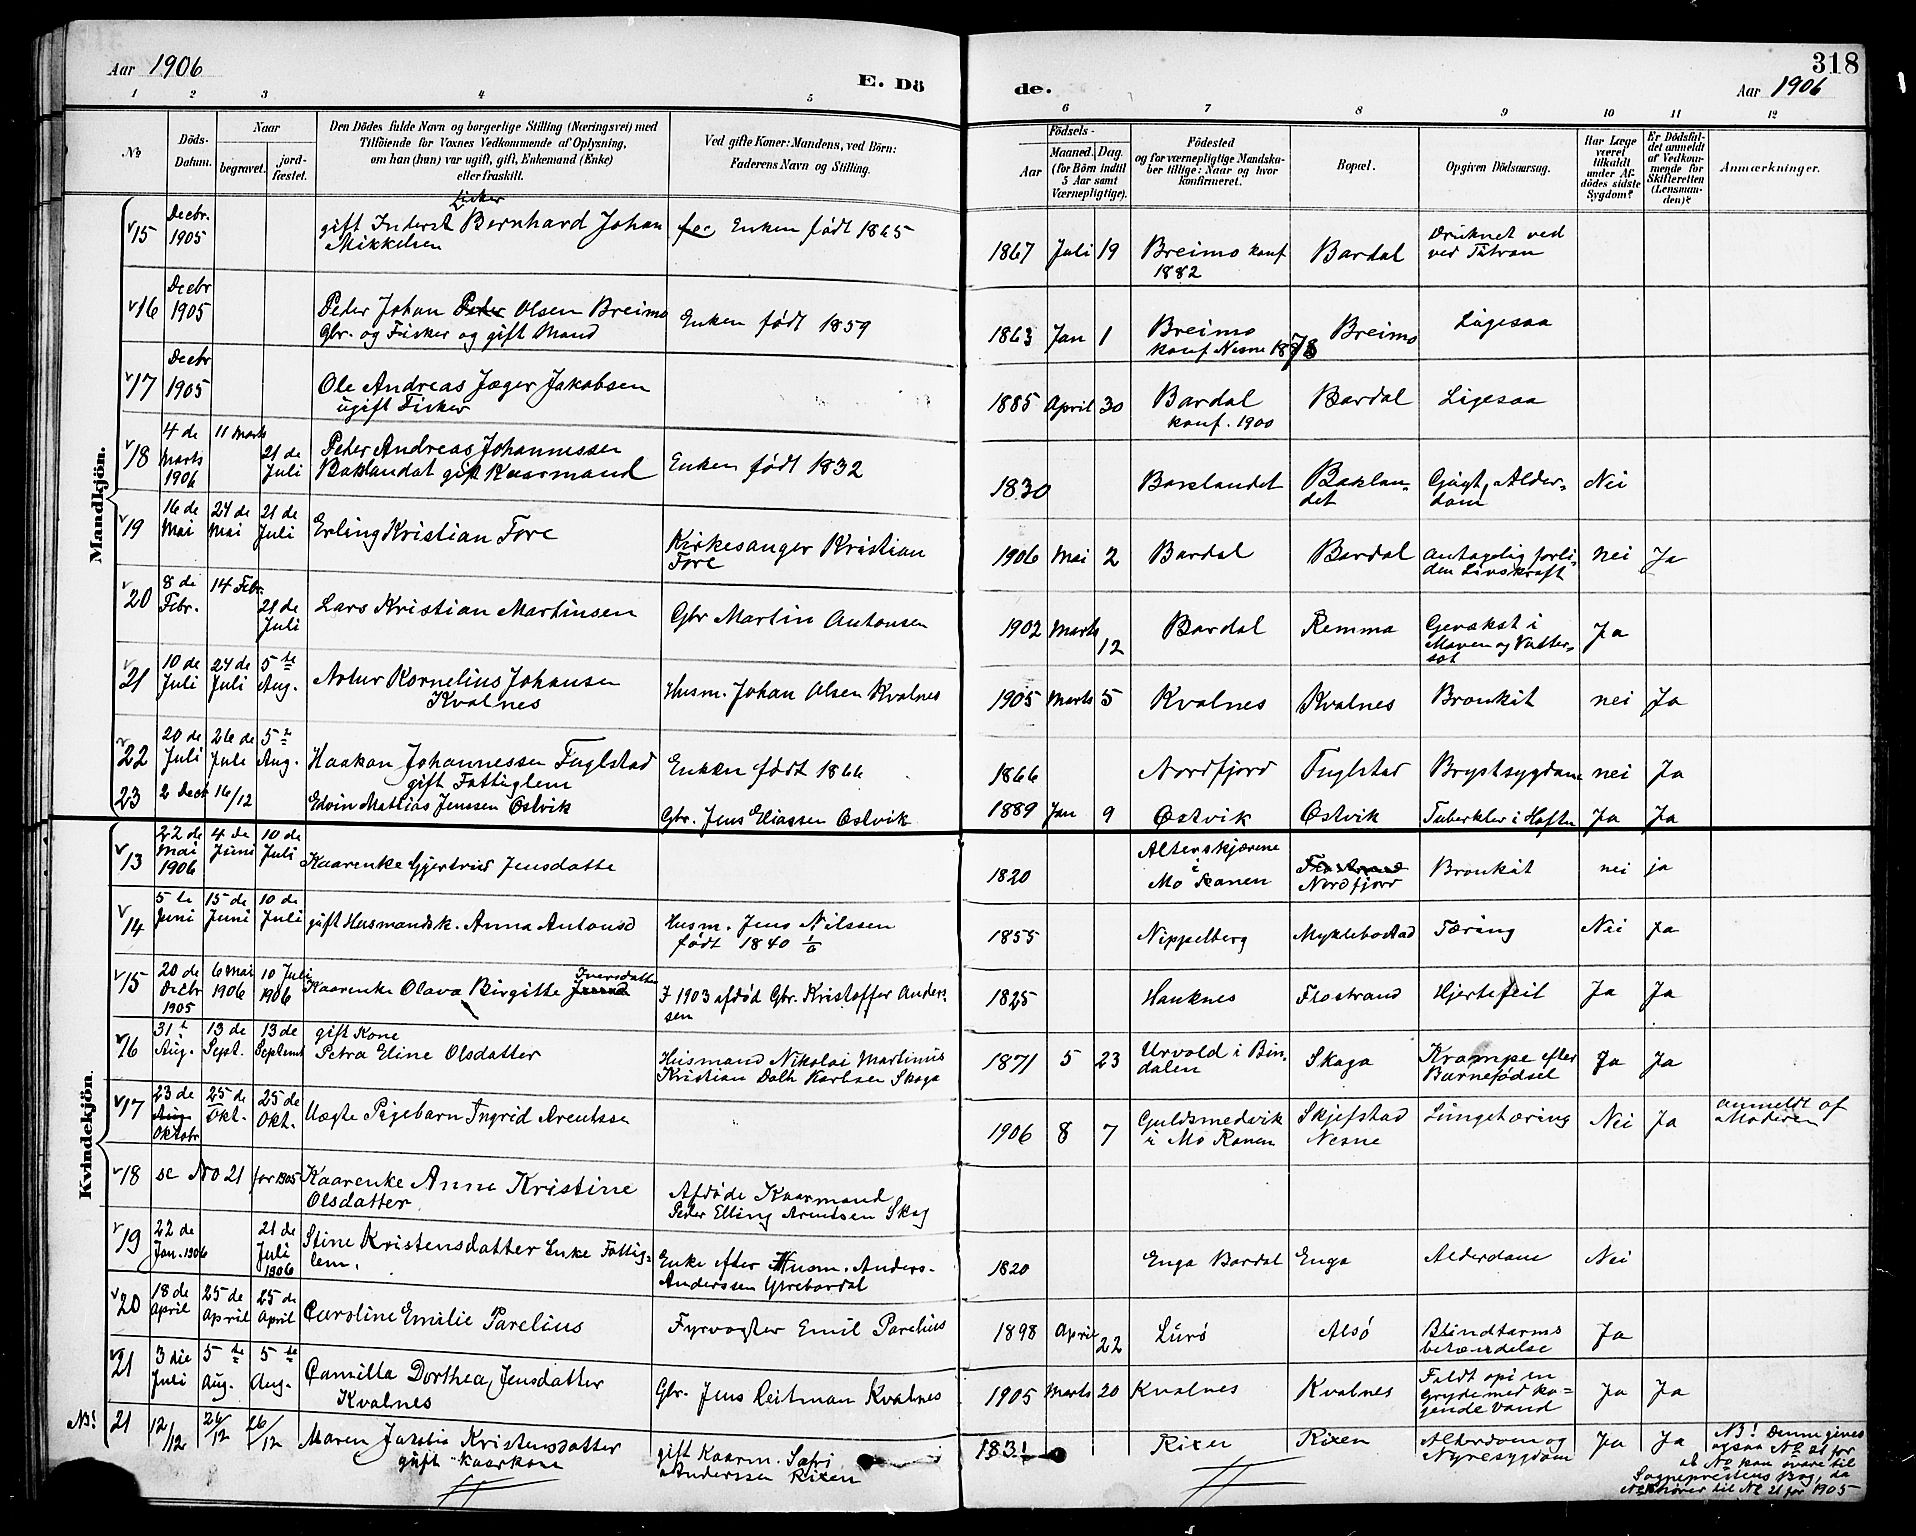 Aar 1906
E. Dö
de.
318
Aar 1906
1 2 3 4 5 6 7 8 9 10 11 12
№
Döds-
Datum.
Naar
begravet.
jord-
fæstet.
Den Dödes fulde Navn og borgerlige Stilling (Næringsvei) med
Tilföiende for Voxnes Vedkommende af Oplysning,
om han (hun) var ugift, gift, Enkemand (Enke)
eller fraskilt.
Ved gifte Koner: Mandens, ved Börn:
Faderens Navn og Stilling.
Födsels-
Aar
Maaned. Dag.
(for Börn indtil
5 Aar samt
Værnepligtige).
Födested
og for værnepligtige Mandska-
ber tillige: Naar og hvor
konfirmeret.
Bopæl.
Opgiven Dödsaarsag.
Har Læge
været
tilkaldt
under Af-
dödes sidste
Sygdom?
Er Dödsfal-
det anmeldt
af Vedkom-
mende for
Skifteretten
(Lensman-
den)?
Anmærkninger.
Mandkjön.
15 Decbr. 1905
gift Inderst Fisker Bernhard Johan
Mikkelsen
Enken født 1865
1867 Juli 19 Breimo konf 1882 Bardal Druknet ved
ved Titran
16 Decbr 1905
Peder Johan Peder Olsen Breimo
Gbr. og Fisker og gift Mand
Enken født 1859
1863 Jan 1 Breimo konf Nesne 1878 Breimo Ligesaa
17 Decbr 1905
Ole Andreas Jæger Jakobsen
ugift Fisker
1885 April 30 Bardal konf. 1900 Bardal Ligesaa
18 4 de Marts 1906 11 Marts 21 de Juli
Peder Andreas Johannessen
Baklandet gift Kaarmand
Enken født 1832
1830 Baklandet Baklan-
det Gigt, Alder-
dom Nei
19 16 de Mai 24 de Mai 21 de Juli
Erling Kristian Fore
Kirkesanger Kristian
Fore
1906 Mai 2 Bardal Bardal Antagelig forli-
den Livskraft nei Ja
20 8 de Febr. 14 Febr. 21 de Juli
Lars Kristian Martinsen
Gbr Martin Antonsen
1902 Marts 12 Bardal Remma Gevækst i
Maven og Vatter-
sot Ja
21 10 de Juli 24 de Juli 5 te Aug.
Artur Kornelius Johansen
Kvalnes
Husm. Johan Olsen Kvalnes
1905 Marts 5 Kvalnes Kvalnes Bronkit nei Ja
22 20 de Juli 26 de Juli 5 te Aug.
Haakon Johannessen Fuglstad
gift Fattiglem
Enken født 1866
1866 Nordfjord Fuglstad Brystsygdom nei Ja
23 2 Decbr 16/12
Edvin Mathias Jenssen Østvik
Gbr. Jens Eliassen Østvik
1889 Jan 9 Østvik Østvik Tuberkler i Hoften Ja Ja
Kvindekjön.
13 22 de Mai 1906 4 de Juni 10 de Juli
Kaarenke Gjertrud Jensdatte
1820 Alterskjærene
i
Mo Ranen Nordfjord Bronkit nei ja
14 5 te Juni 15 de Juni 10 de Juli
gift Husmandsk. Anna Antonsd
Husm. Jens Nilssen
født 1840 1/6
1855 Nippelberg Myklebostad Tæring Nei Ja
15 20 de Decbr 1905 6 Mai 1906 10 Juli 1906
Kaarenke Olava Birgitte Iversdatter
I 1903 afdød Gbr. Kristoffer Ander-
sen
1825 Hauknes Flostrand Hjertefeil Ja Ja
16 31 te Aug. 13 de Sept. 13 de Septemb
gift Kone
Petra Eline Olsdatter
Husmand Nikolai Martinus
Kristian Dalh Karlsen Skaga
1871 5 23 Urvold i Bin-
dalen Skaga Krampe efter
Barnefødsel Ja Ja
17 23 de Aug Oktobr 25 de Okt. 25 de Okt.
Uægte Pigebarn Ingrid Arentsse
1906 8 7 Guldsmedvik
i Mo Ranen Skjefstad
Nesne Lungetæring Nei Ja anmeldt af
Moderen
18 se No 21 for 1905
Kaarenke Anne Kristine
Olsdatter
Afdøde Kaarmand
Peder Elling Arentsen Skog
19 22 de Jan. 1906 21 de Juli 1906
Stine Kristensdatter Enke Fattig-
lem.
Enke efter Husm. Anders-
Anderssen Ytrebardal
1820 Enga Bardal Enga Alderdom Nei
20 18 de April 25 de April 25 de April
Caroline Emilie Parelius
Fyrvogter Emil Parelius
1898 April 22 Lurö Alsö Blindtarms
betændelse Ja
21 3 die Juli 5 te Aug. 5 te Aug.
Camilla Dorthea Jensdatter
Kvalnes
Gbr. Jens Reitman Kvalnes
1905 Marts 20 Kvalnes Kvalnes Faldt opi en
Gryde med ko-
gende Vand Ja Ja
NB! 21 12/12 26/12 26/12
Maren Jakobia Kristensdatter
gift Kaarkone
gift Kaarm. Sefri
Anderssen Rixen
1831 Rixen Rixen Alderdom og
Nyresygdom Ja Ja NB! Denne gives
ogsaa № 21 for
at № kan svare til
Sogneprestens Bog, da
№ 18 hører til № 21 for 1905